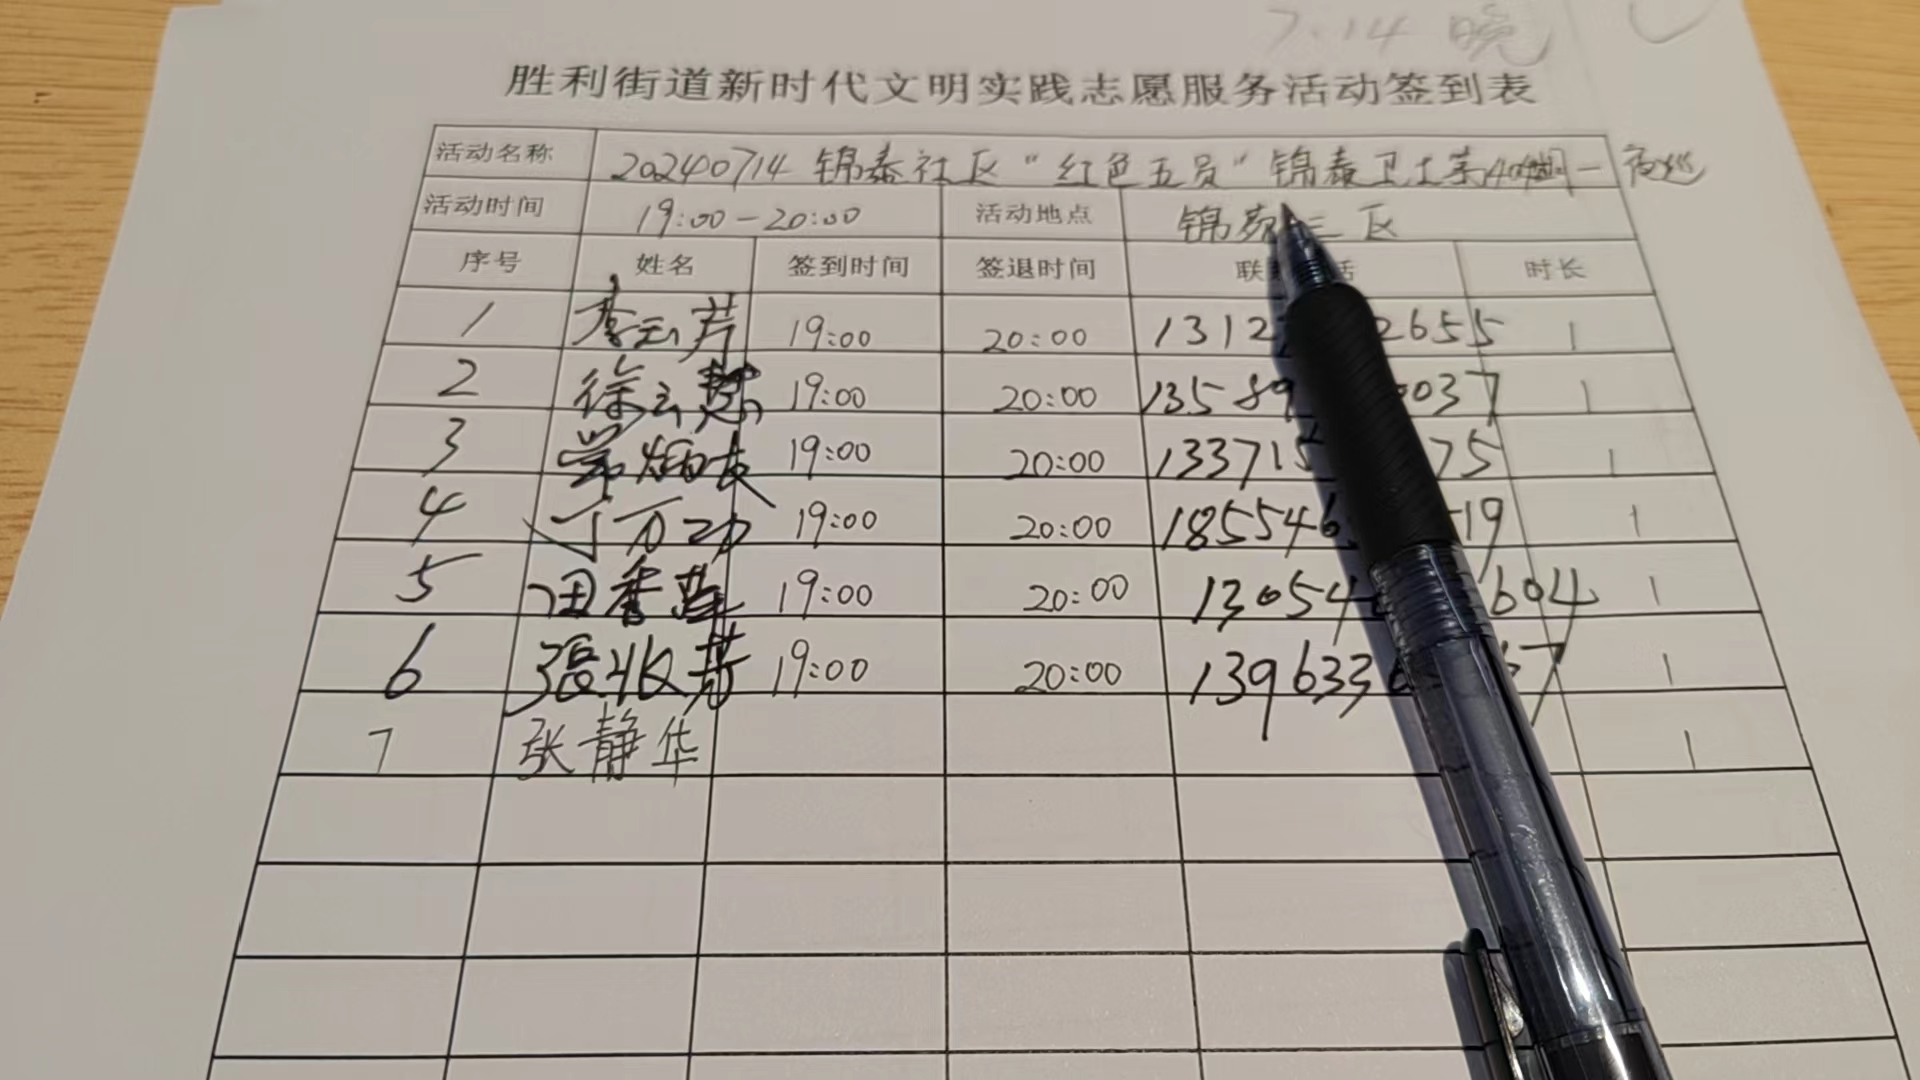 7.14 晚
胜利街道新时代文明实践志愿服务活动签到表
活动名称 20240714 锦泰社区“红色五员”锦泰卫士第 一夜巡
活动时间 19:00-20:00 活动地点 锦苑三区
序号 姓名 签到时间 签退时间 联 话 时长
1 李云芳 19:00 20:00 1312 2655 1
2 徐云慧 19:00 20:00 13589 0037 1
3 炳友 19:00 20:00 133715 75 1
4 丁万功 19:00 20:00 185546 19 1
5 田香莲 19:00 20:00 13054 604 1
6 張收芳 19:00 20:00 139633 37 1
7 张静华 1